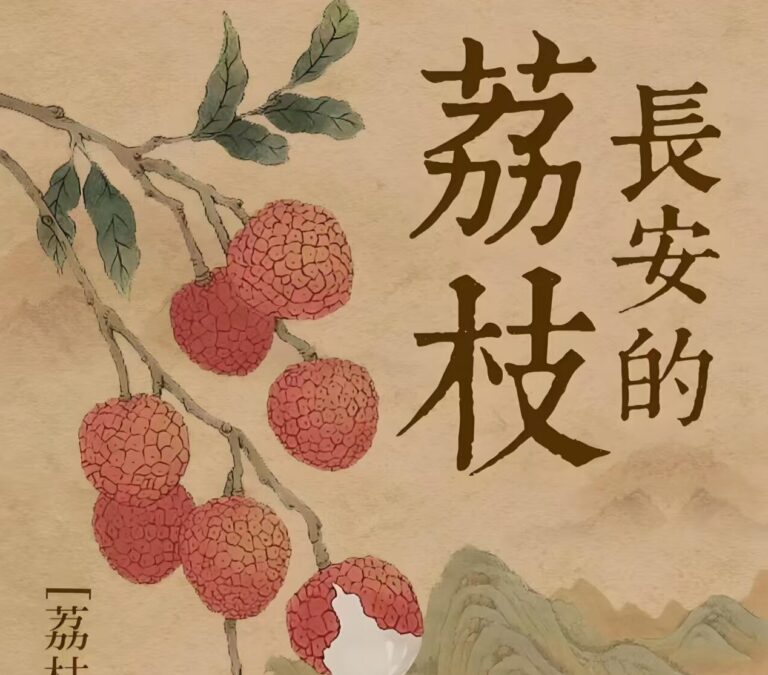 長安的
荔枝
[荔枝